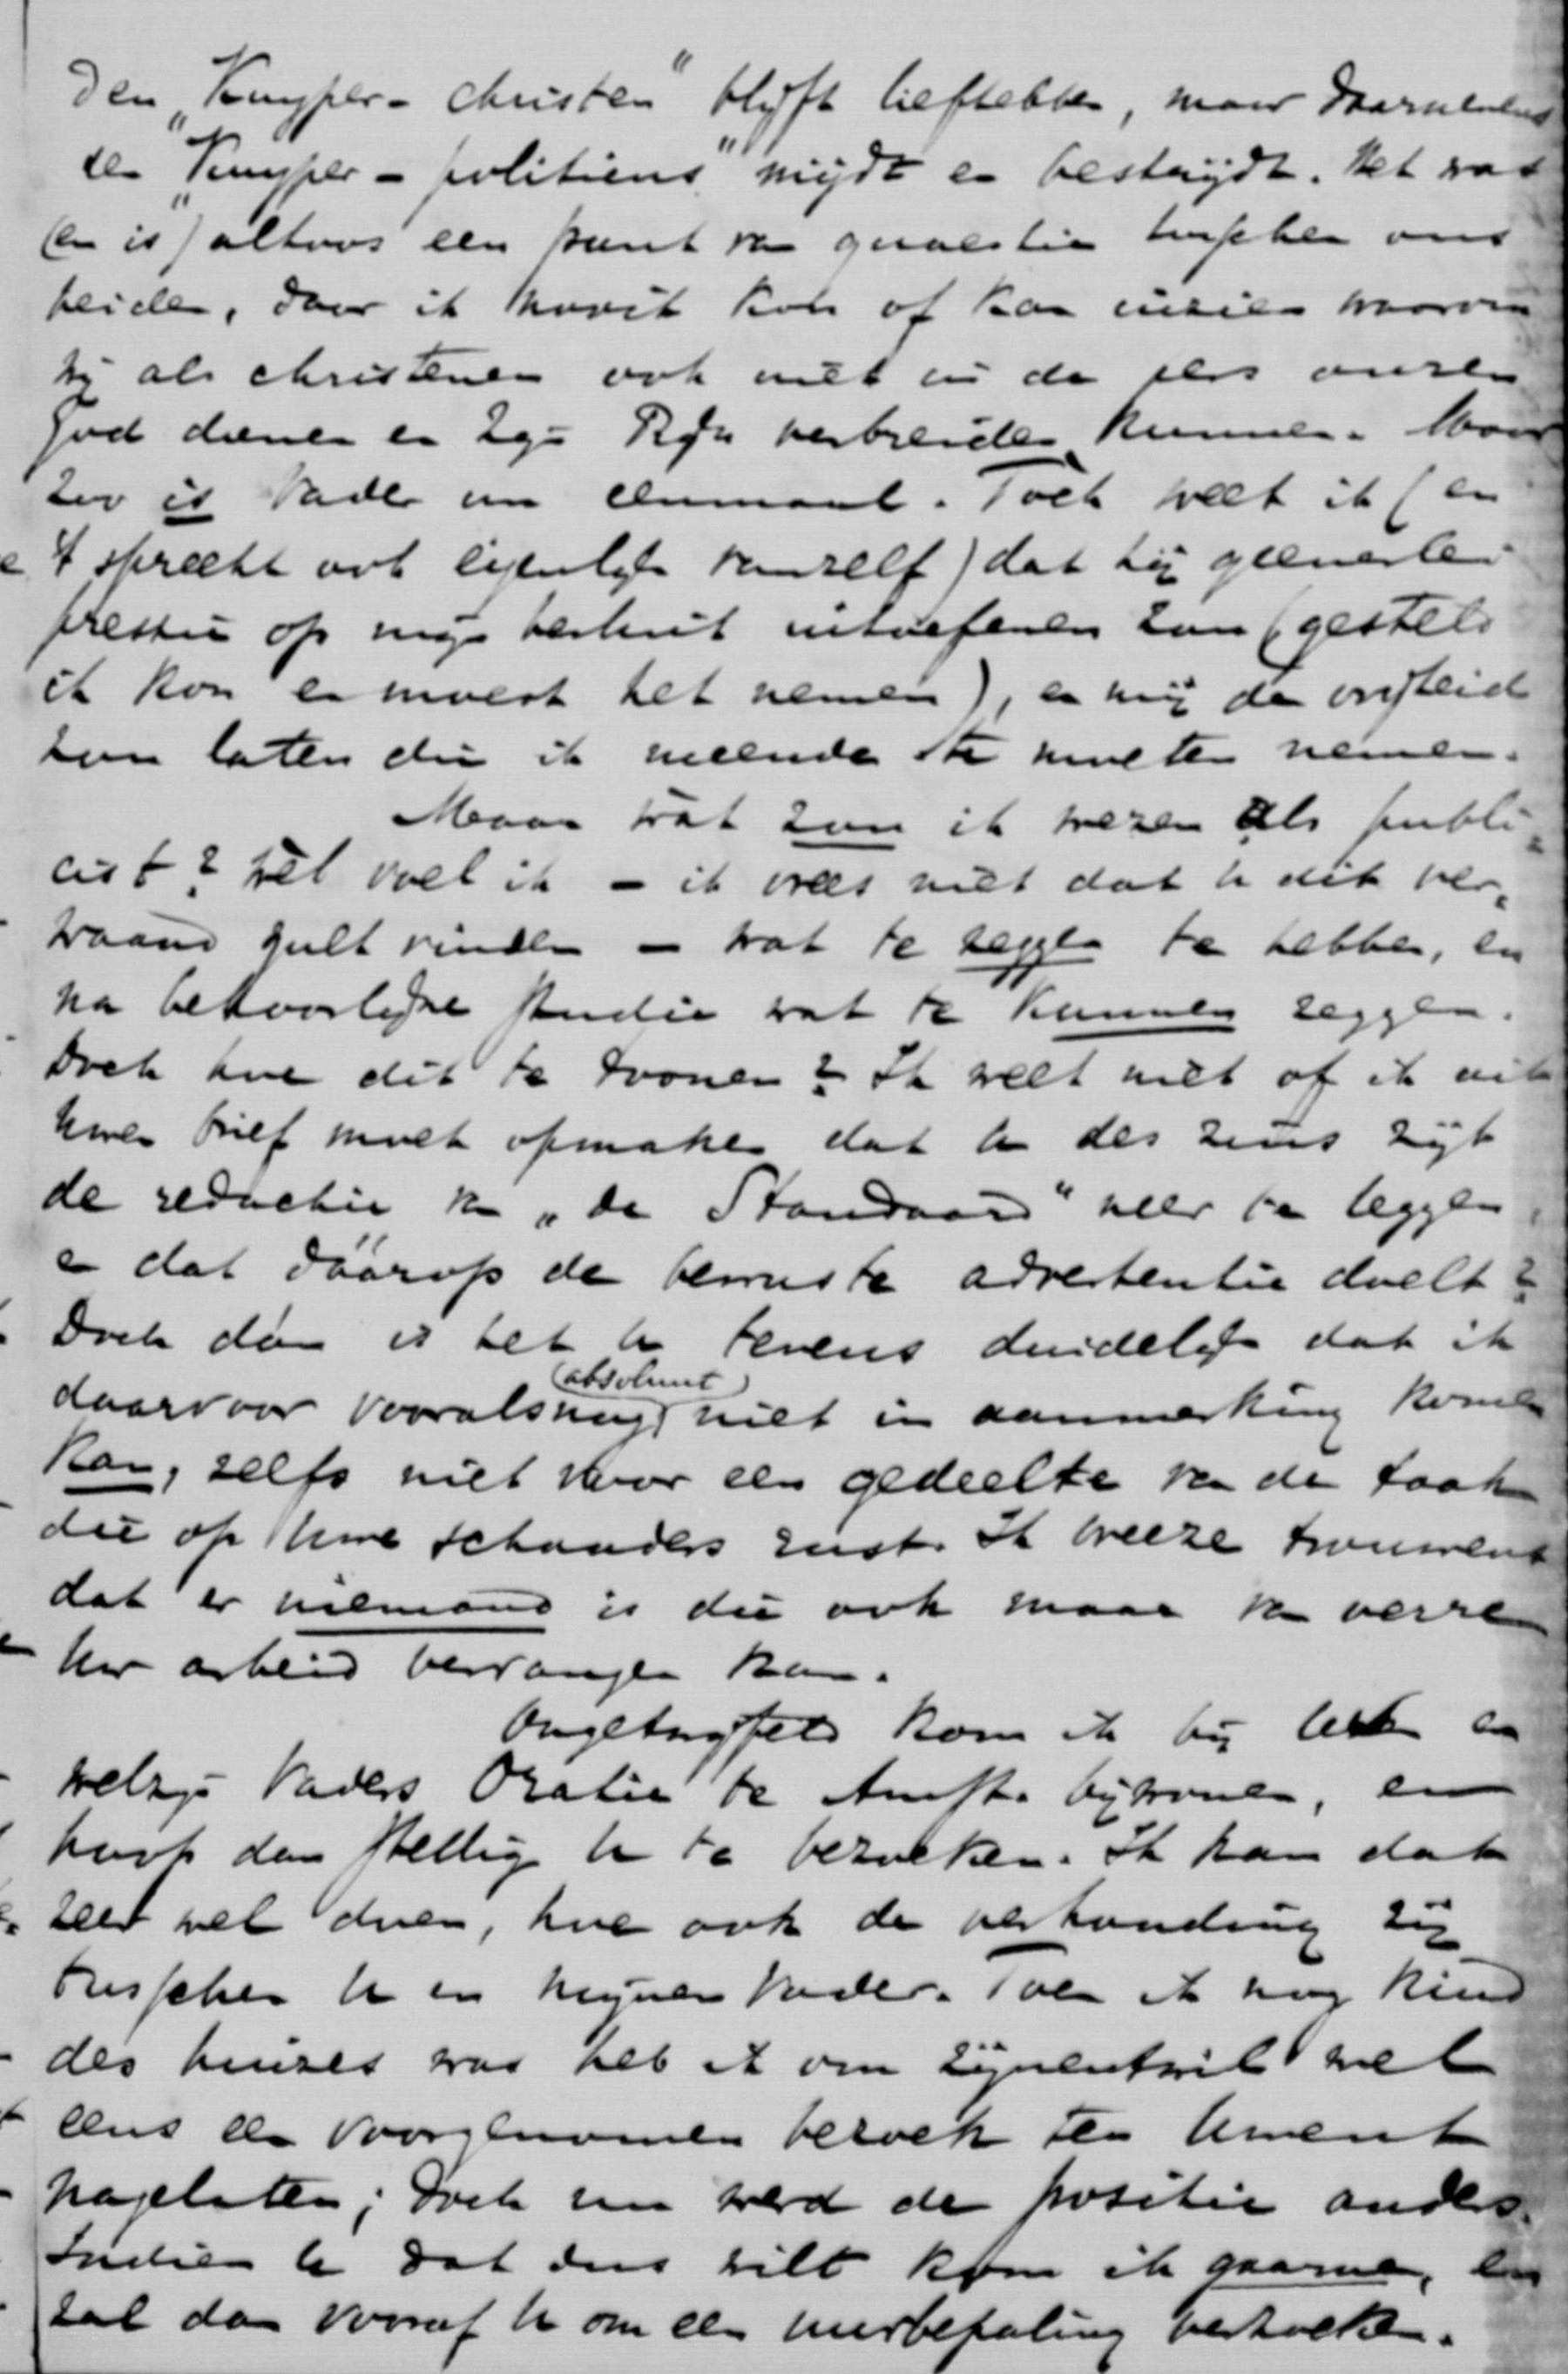 Den „Kuyper-Christen" blyft liefhebben, maar daarnevens
den „Kuyper-politicus" mijdt en bestrijdt. Het was
(en is) altoos een punt van quaestie tusschen ons
beiden, daar ik nooit kon of kan inzien waarom
wij als christenen ook niet in de pers onzen
God dienen en Zijn Rijk verbreiden kunnen. Maar
zoo is Vader nu eenmaal. Toch weet ik (en
't spreekt ook eigenlyk vanzelf) dat hij geenerlei
pressie op mijn besluit uitoefenen zou (gesteld
ik kon en moest het nemen), en mij de vrijheid
zou laten die ik meende te moeten nemen.
Maar wat zou ik wezen als publi-
cist? Wel voel ik – ik vrees niet dat U dit ver-
waand zult vinden – wat te zeggen te hebben, en
na behoorlyke studie wat te kunnen zeggen.
Doch hoe dit te toonen? Ik weet niet of ik uit
Uwen brief moet opmaken dat U des zins zijt
de redactie van „de Standaard" neer te leggen,
en dat dáárop de bewuste advertentie doelt?
Doch dan is het U tevens duidelyk dat ik
daarvoor vooralsnog (absoluut) niet in aanmerking komen
kan, zelfs niet voor een gedeelte van de taak
die op Uwe schouders rust. Ik vreeze trouwens
dat er niemand is die ook maar van verre
Uw arbeid vervangen kan.
Ongetwyfeld kom ik bij leven en
welzijn Vaders Oratie te Amst. bijwonen, en
hoop dan stellig U te bezoeken. Ik kan dat
zeer wel doen, hoe ook de verhouding zij
tusschen U en mijnen Vader. Toen ik nog kind
des huizes was heb ik om zijnentwil wel
eens een voorgenomen bezoek ten Uwent
nagelaten; doch nu werd de positie anders.
Indien U dat dus wilt kom ik gaarne, en
zal dan vooraf U om een uurbepaling verzoeken.